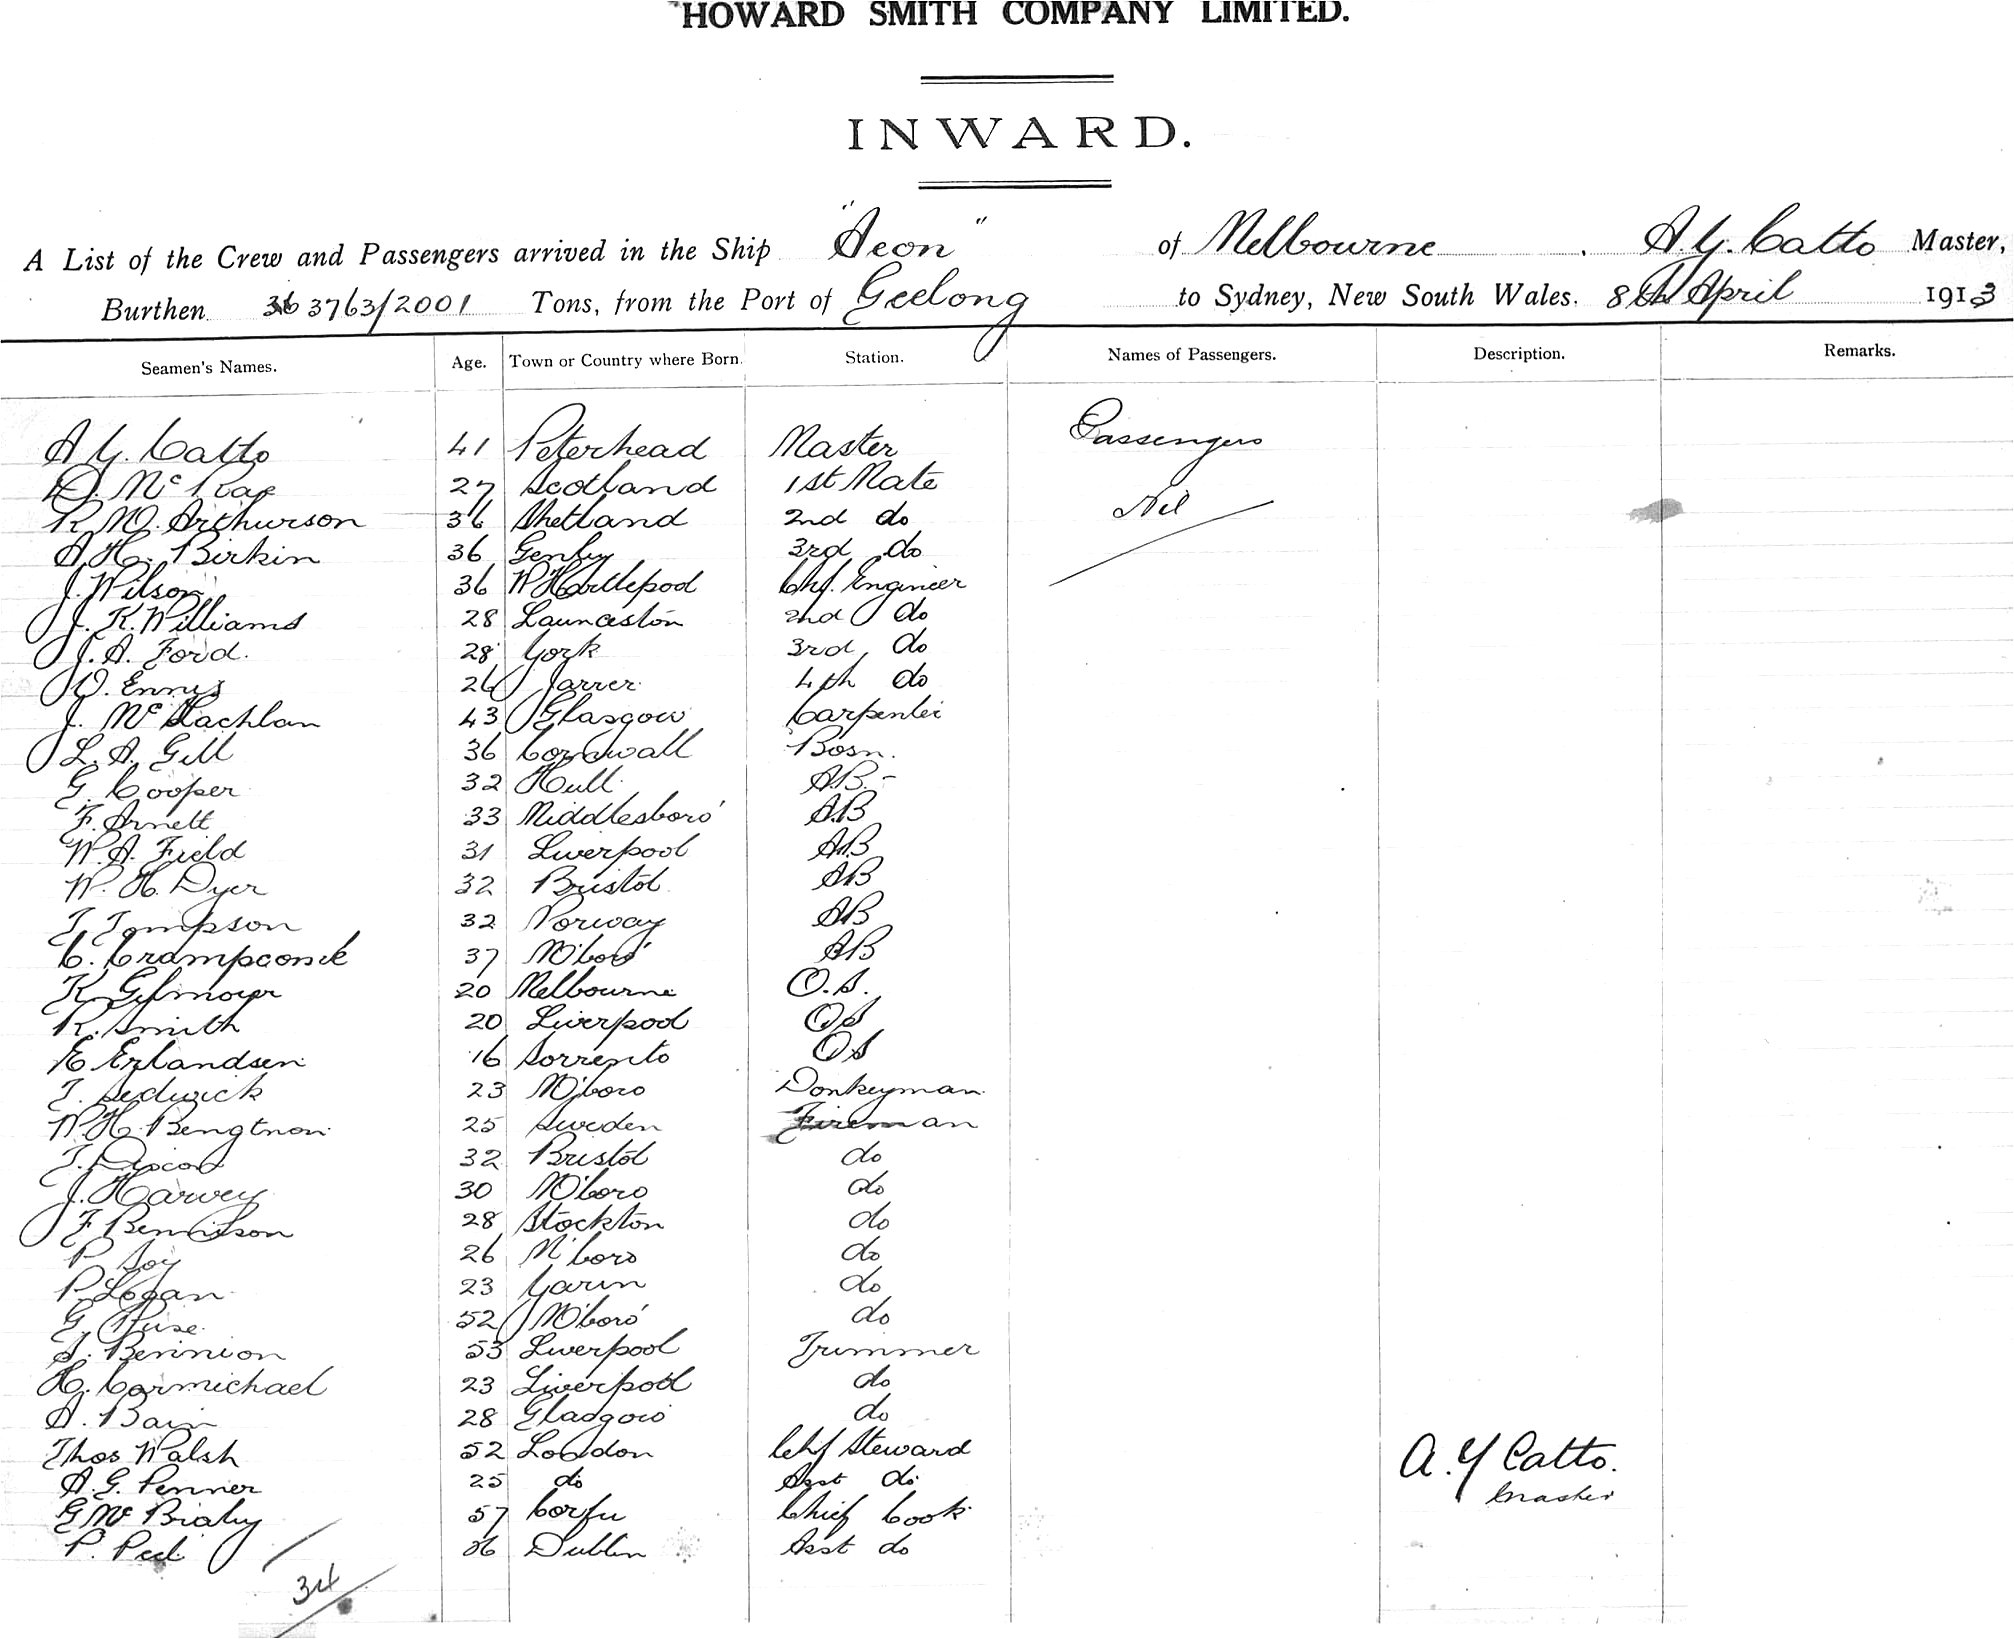 HOWARD SMITH COMPANY LIMITED.
INWARD.
A List of the Crew and Passengers arrived in the Ship "Aeon" of Melbourne, A. Y. Catto Master,
Burthen 3763/2001 Tons, from the Port of Geelong to Sydney, New South Wales. 8th April 1913
Seamen's Names. Age. Town or Country where Born. Station. Names of Passengers. Description. Remarks.
A Y. Catto 41 Peterhead Master Passengers
D. McRae 27 Scotland 1st Mate
R. M. Arthurson 36 Shetland 2nd do Nil
A. H. Birkin 36 3rd do
J. Wilson 36 W Hartlepool Chf. Engineer
J. K. Williams 28 Launceston 2nd do
J. A. Ford. 28 York 3rd do
D. Ennis 26 Jarrer 4th do
J. McLachlan 43 Glasgow Carpenter
L. A. Gill 36 Cornwall Bosn.
G. Cooper 32 Hull A.B.-
F. Arnett 33 Middlesboro' A.B
W. A. Field 31 Liverpool A.B
W. H. Dyer 32 Bristol AB
T Tompson 32 Norway AB
C. 37 M'boro' AB
K. Gilmour 20 Melbourne O.S.
R. Smith 20 Liverpool OS
E Erlandsen 16 Sorrento OS
T. Sedwick 23 M'boro Donkeyman
W. H. Bengtnon 25 Sweden Fireman
T. Dixon 32 Bristol do
J. Harvey 30 M'boro do
F Bennison 28 Stockton do
P Joy 26 M'boro do
P. Logan 23 Yarm do
G. Ruse. 52 M'boro' do
S. Bennion 53 Liverpool Trimmer
H. Carmichael 23 Liverpool do
A. Bain 28 Glasgow do
Thos Walsh 52 London Chf Steward
A. G. Penner 25 do Asst do
G Mc 57 Corfu Chief Cook
P. Peel 36 Dublin Asst do
A. Y Catto.
Master
34